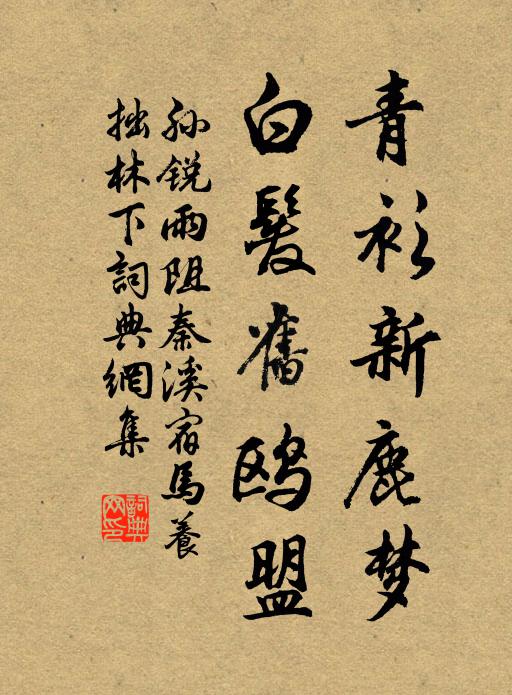 青衫新鹿梦
白髮舊鸥盟
孙锐雨阻秦溪宿馬養
拙林下詞典網集
詞典網印